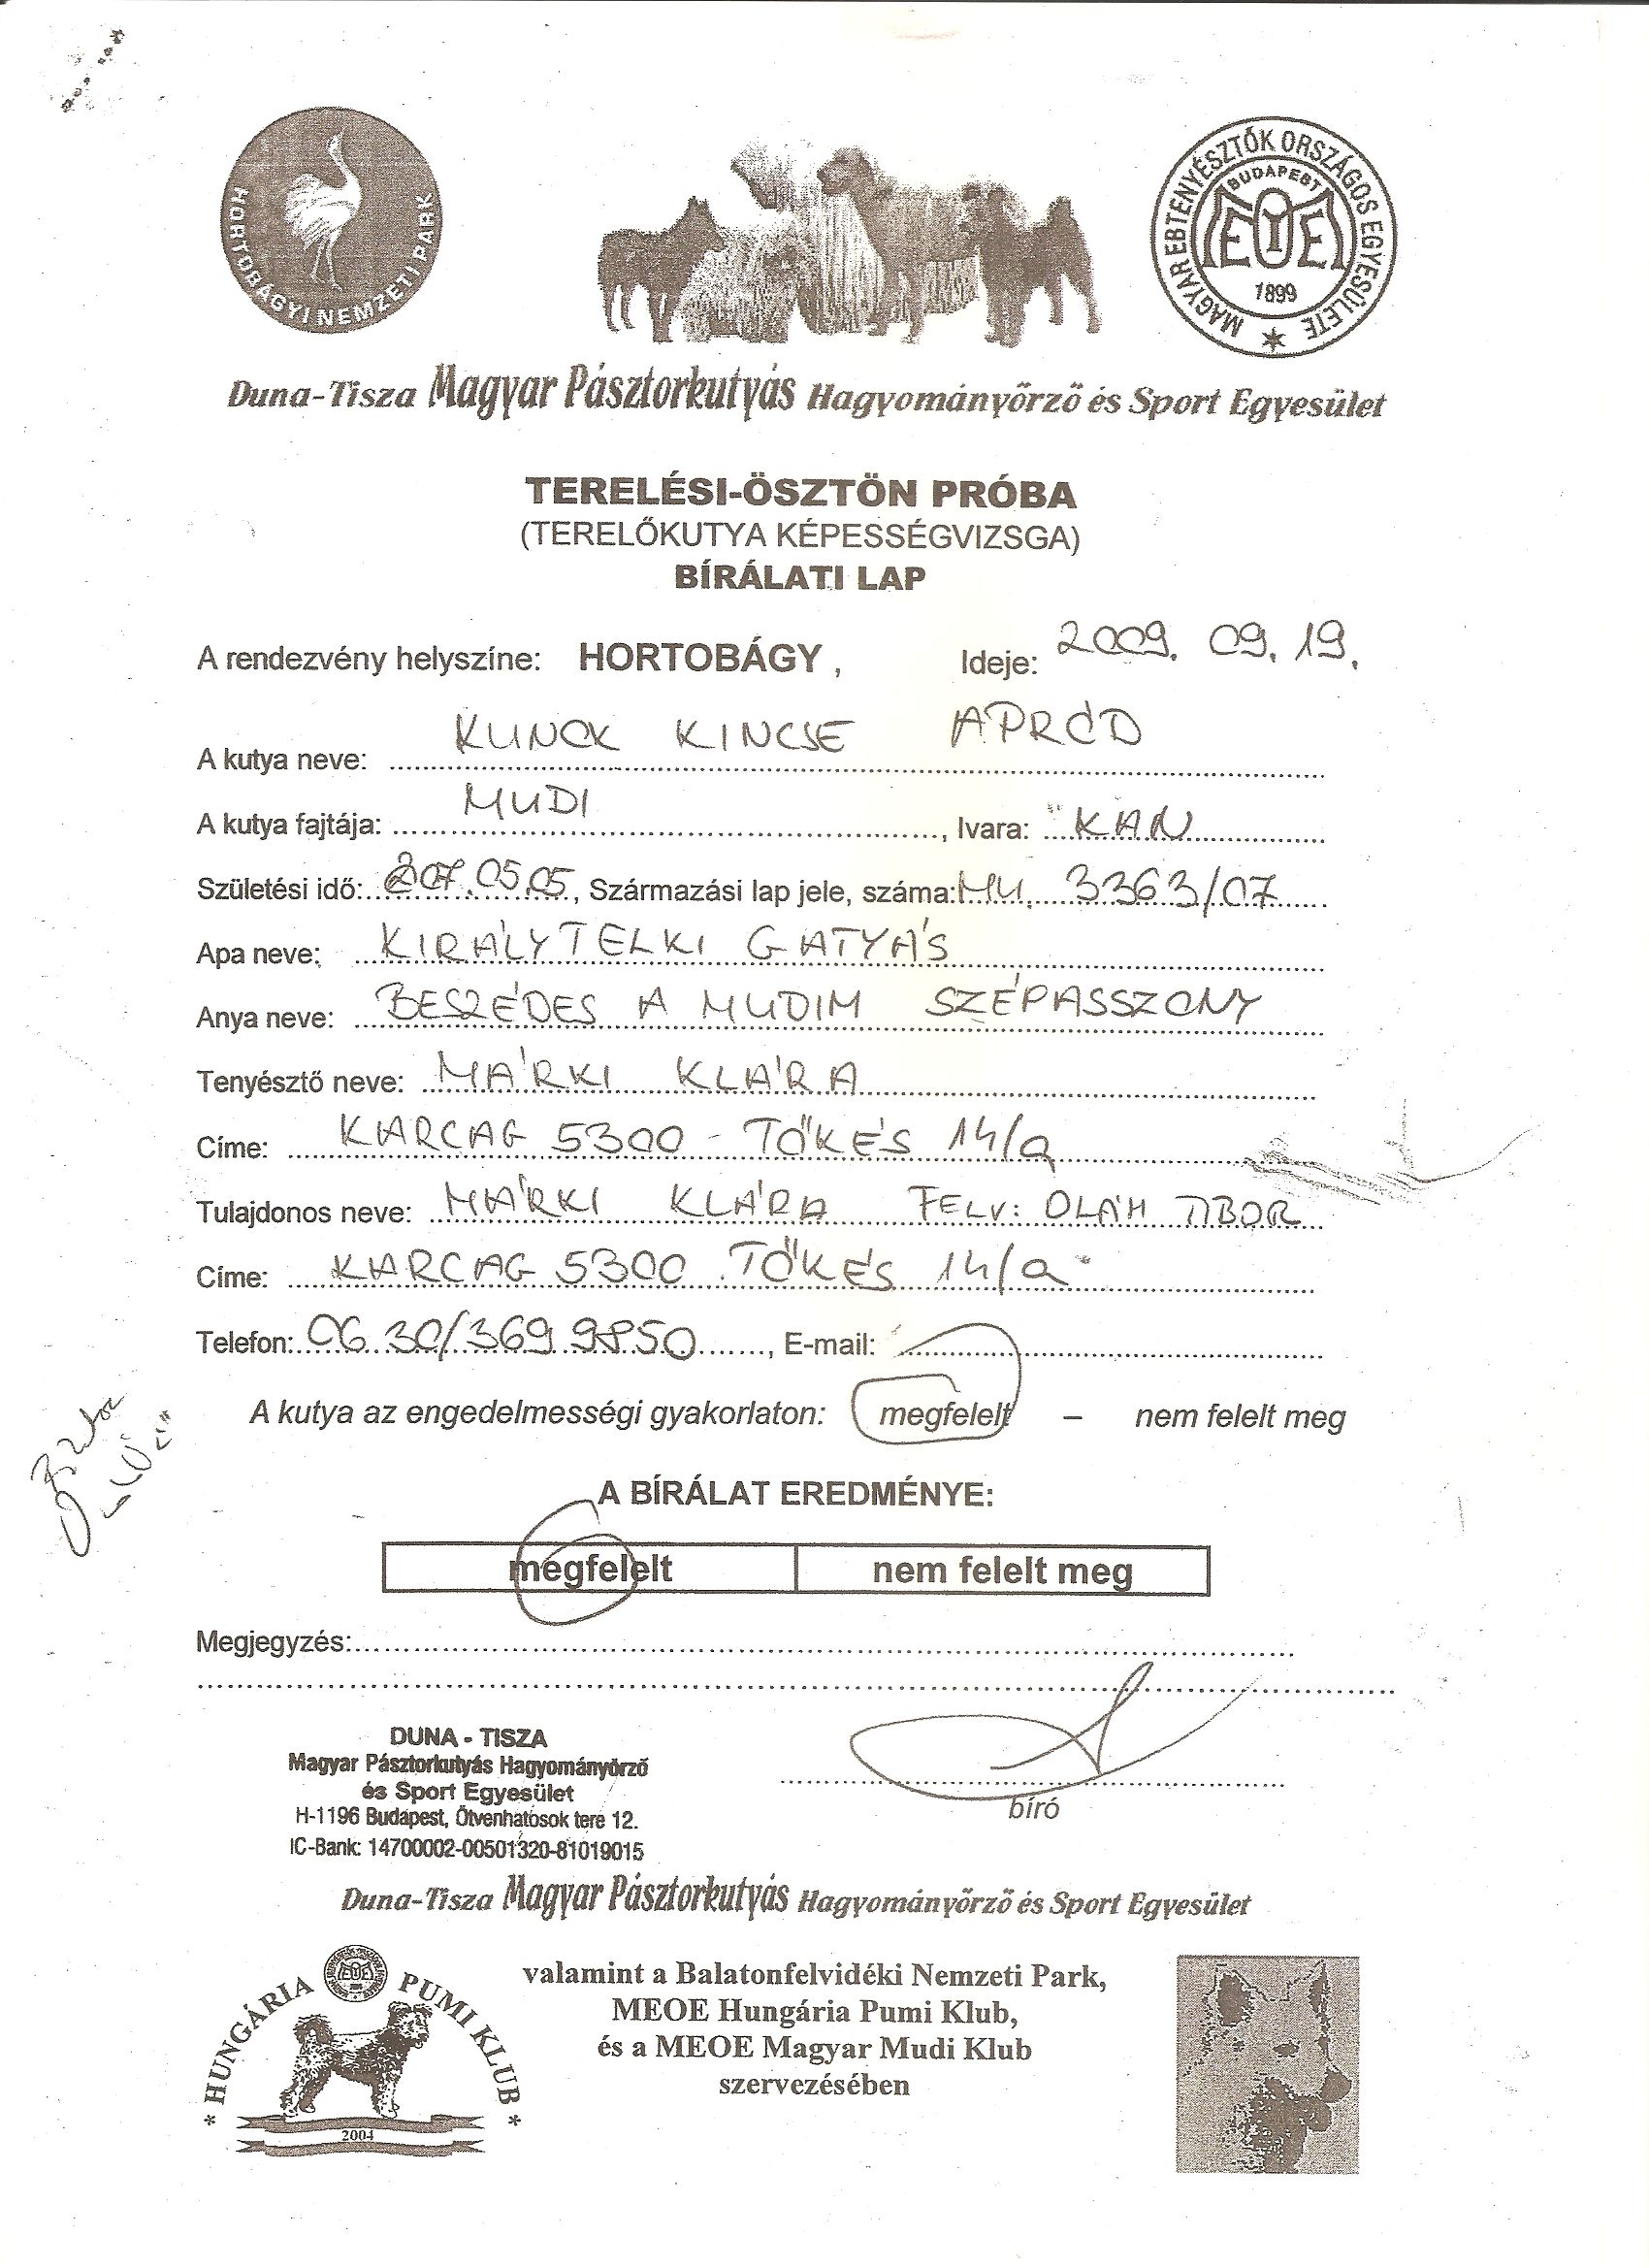 HORTOBÁGYI NEMZETI PARK
MAGYAR EBTENYÉSZTŐK ORSZÁGOS EGYESÜLETE
BUDAPEST
MEOE
1899
Duna-Tisza Magyar Pásztorkutyás Hagyományőrző és Sport Egyesület
TERELÉSI-ÖSZTÖN PRÓBA
(TERELŐKUTYA KÉPESSÉGVIZSGA)
BÍRÁLATI LAP
A rendezvény helyszíne: HORTOBÁGY, Ideje: 2009. 09. 19.
A kutya neve: KUNOK KINCSE APRÓD
A kutya fajtája: MUDI, Ivara: KAN
Születési idő: 207.05.05, Származási lap jele, száma: MU. 3363/07
Apa neve: KIRÁLYTELKI GATYÁS
Anya neve: BESZÉDES A MUDIM SZÉPASSZONY
Tenyésztő neve: MÁRKI KLÁRA
Címe: KARCAG 5300 - TŐKÉS 14/a
Tulajdonos neve: MÁRKI KLÁRA FELV: OLÁH TIBOR
Címe: KARCAG 5300 TŐKÉS 14/a
Telefon: 06 30/369 9850, E-mail:
A kutya az engedelmességi gyakorlaton: megfelelt – nem felelt meg
A BÍRÁLAT EREDMÉNYE:
megfelelt nem felelt meg
Megjegyzés:
DUNA - TISZA
Magyar Pásztorkutyás Hagyományőrző
és Sport Egyesület
H-1196 Budapest, Ötvenhatosok tere 12.
IC-Bank: 14700002-00501320-81019015
bíró
Duna-Tisza Magyar Pásztorkutyás Hagyományőrző és Sport Egyesület
* HUNGÁRIA PUMI KLUB *
2004
valamint a Balatonfelvidéki Nemzeti Park,
MEOE Hungária Pumi Klub,
és a MEOE Magyar Mudi Klub
szervezésében